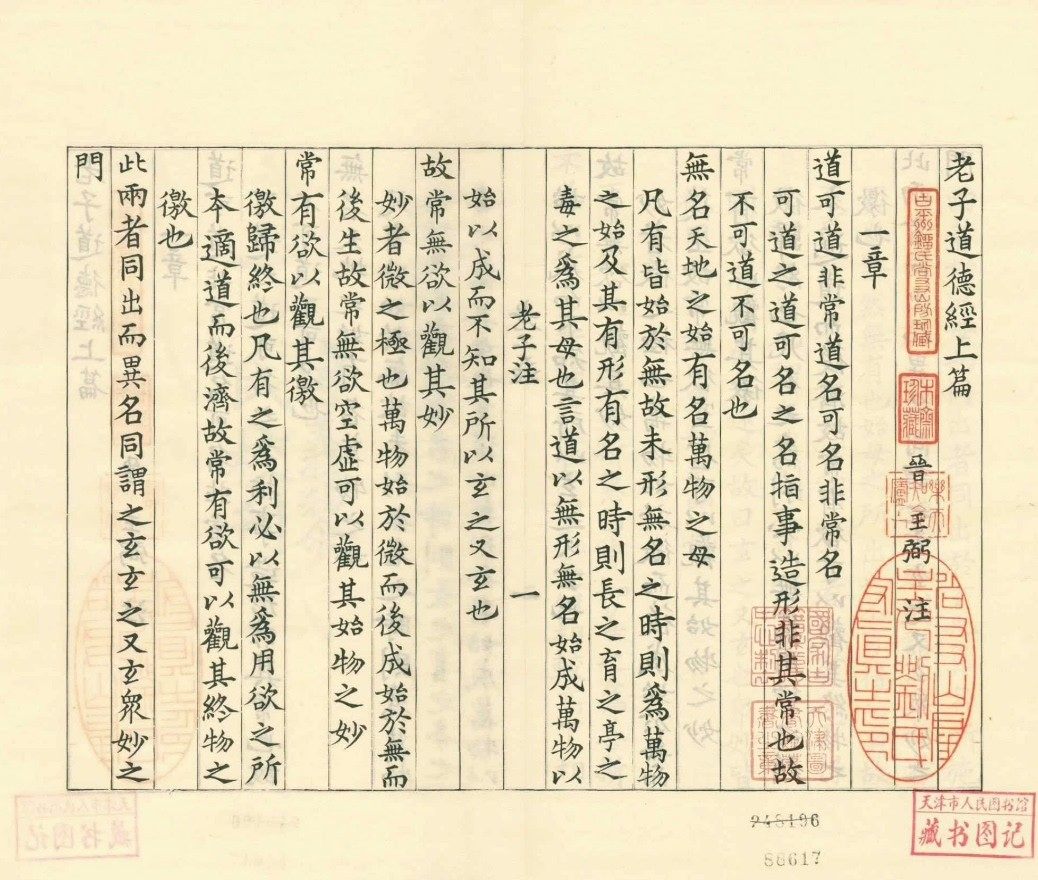 老子道德經上篇
晉 王弼 注
一章
道可道非常道名可名非常名
可道之道可名之名指事造形非其常也故
不可道不可名也
無名天地之始有名萬物之母
凡有皆始於無故未形無名之時則爲萬物
之始及其有形有名之時則長之育之亭之
毒之爲其母也言道以無形無名始成萬物以
老子注 一
始以成而不知其所以玄之又玄也
故常無欲以觀其妙
妙者微之極也萬物始於微而後成始於無而
後生故常無欲空虛可以觀其始物之妙
常有欲以觀其徼
徼歸終也凡有之爲利必以無爲用欲之所
本適道而後濟故常有欲可以觀其終物之
徼也
此兩者同出而異名同謂之玄玄之又玄衆妙之
門
木齋珍藏
天津市人民图书馆
藏书图记
948196
86617